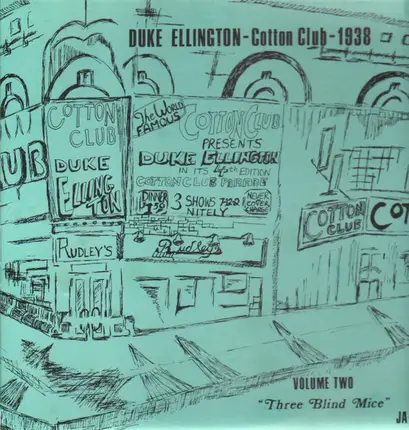 DUKE ELLINGTON-Cotton Club-1938
COTTON
CLUB
DUKE
ELLING
TON
The World
FAMOUS
COTTON CLUB
PRESENTS
DUKE ELLINGTON
IN ITS 4th EDITION
COTTON CLUB PARADE
DINNER
3 SHOWS
NITELY
RUDLEY'S
Rudley's
UB
COTTON
CLUB
COT
VOLUME TWO
"Three Blind Mice"
JA